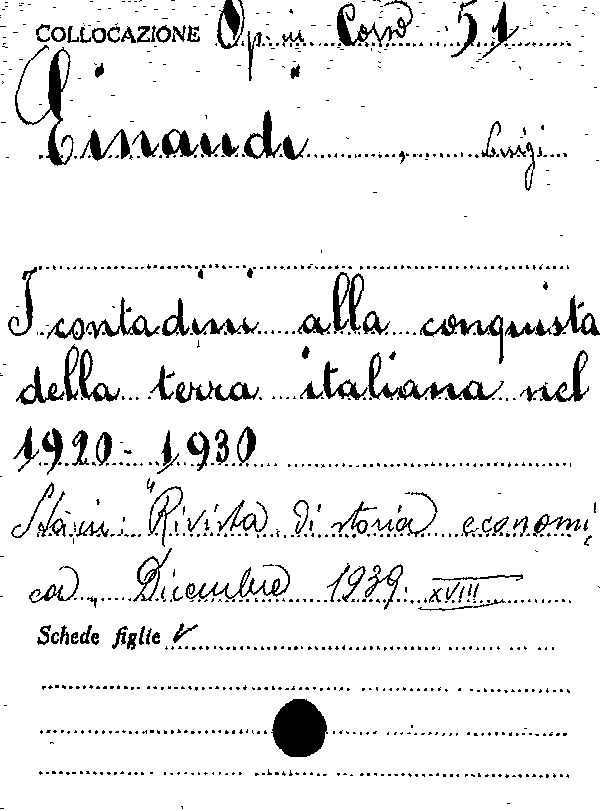 COLLOCAZIONE Op. in Corso 51
Einaudi, Luigi
I contadini alla conquista
della terra italiana nel
1920-1930
Sta in: "Rivista di storia economi
ca„ Dicembre 1939. XVIII
Schede figlie